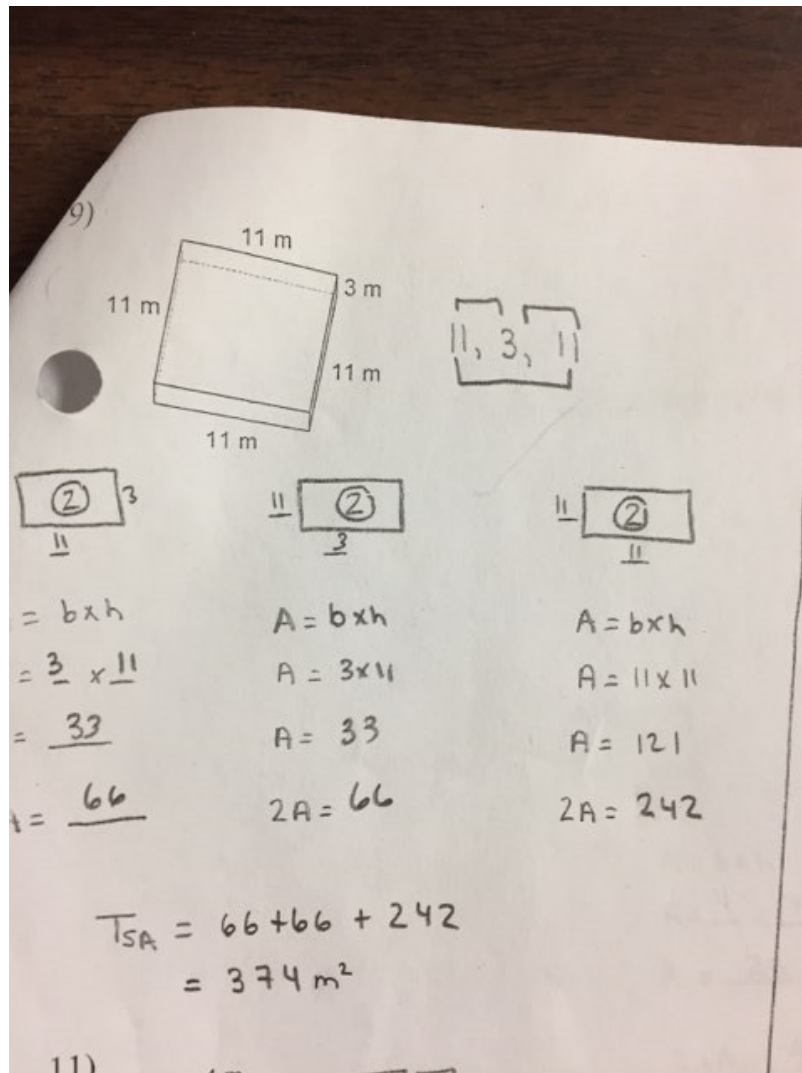 9)
11 m
11 m
3 m
11 m
11 m
11, 3, 11
2 3
11
11 2
3
11 2
11
= b×h
= 3 × 11
= 33
= 66
A = b×h
A = 3×11
A = 33
2A = 66
A = b×h
A = 11×11
A = 121
2A = 242
TSA = 66+66 + 242
= 374 m²
11)